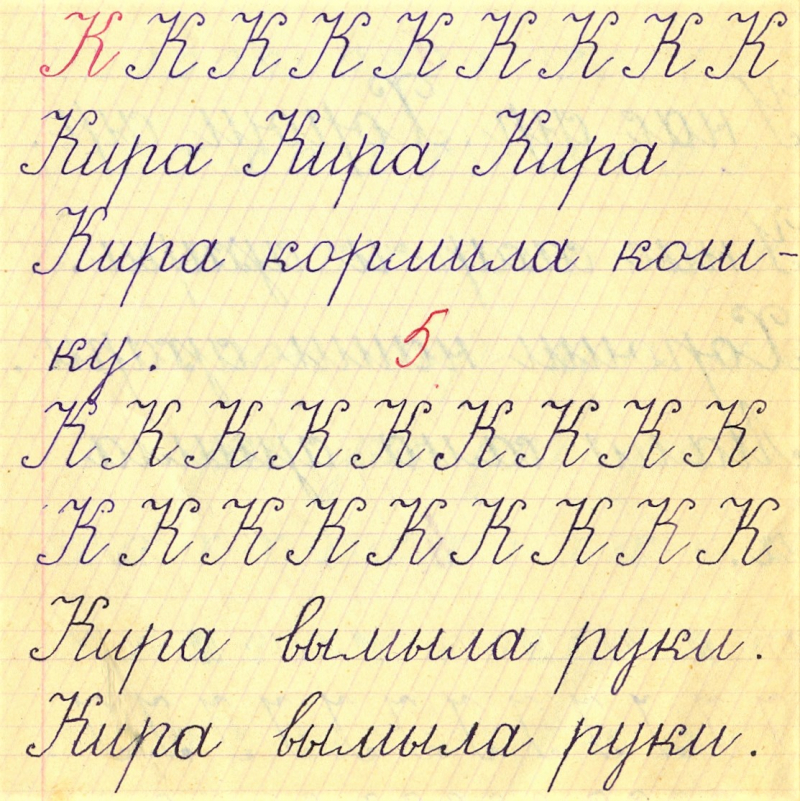 К К К К К К К К К
Кира Кира Кира
Кира кормила кош-
ку. 5
К К К К К К К К К
К К К К К К К К К
Кира вымыла руки.
Кира вымыла руки.